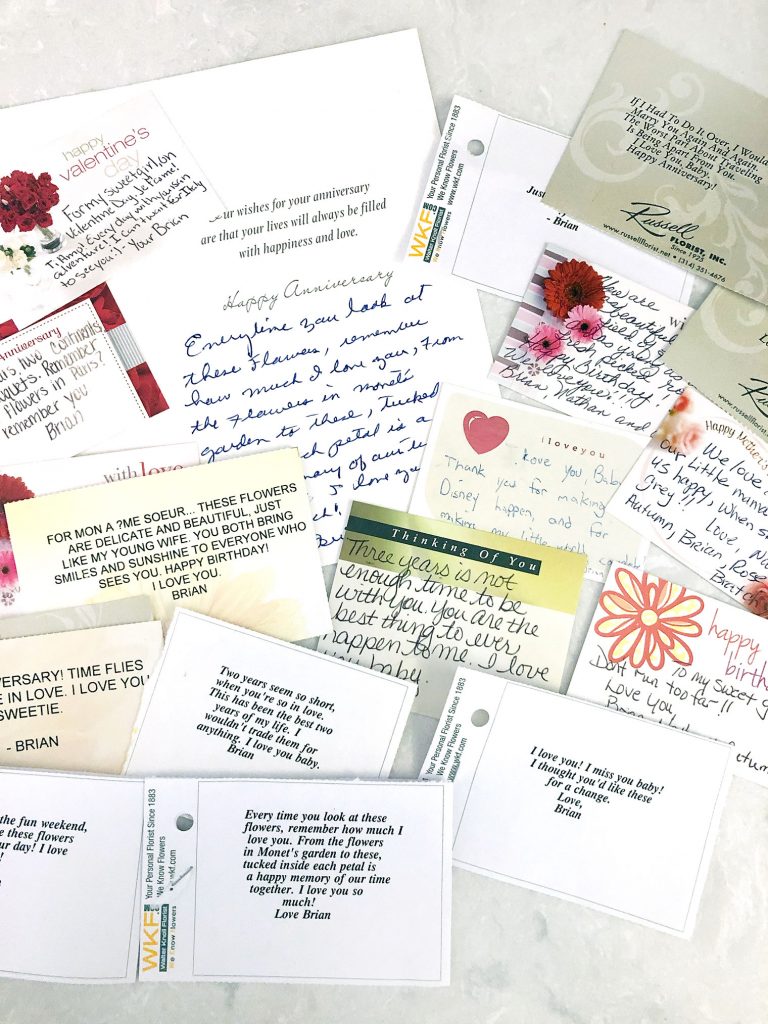 happy
valentine's
day
For my sweet girl on
Valentine Day Je t'aime!
Ti Amo! Every day with you is an
adventure! I can't wait
to see you!:) - Your Brian
Our wishes for your anniversary
are that your lives will always be filled
with happiness and love.
Happy Anniversary
Everytime you look at
these flowers, remember
how much I love you, from
the flowers in monets
garden to these, tucked
petal is a
I love you
WKF
Walter Knoll Florist
We Know Flowers
Your Personal Florist Since 1883
We Know Flowers
www.wkf.com
Just
- Brian
If I Had To Do It Over, I Would
Marry You Again And Again.
The Worst Part About Traveling
Is Being Apart From You.
I Love You, Baby.
Happy Anniversary!
Russell
FLORIST, INC.
Since 1925
www.russellflorist.net • (314) 351-4676
beautiful
fresh picked
Happy Birthday!
We love you!!!
Brian, Nathan and
wi
L
www.russellflorist
Anniversary
two
Remember
flowers in Paris?
remember you
Brian
i love you
Love you Baby
Thank you for making
Disney happen, and for
making my little world
Happy Mother's
We love
our little
us happy, when
grey!!
Love,
Autumn, Brian, Rose
with love
FOR MON A ?ME SOEUR... THESE FLOWERS
ARE DELICATE AND BEAUTIFUL, JUST
LIKE MY YOUNG WIFE. YOU BOTH BRING
SMILES AND SUNSHINE TO EVERYONE WHO
SEES YOU, HAPPY BIRTHDAY!
I LOVE YOU.
BRIAN
Thinking Of You
Three years is not
enough time to be
with you. You are the
best thing to ever
happen to me. I love
you baby.
happy
birth
To my sweet g
Don't run too far!!
Love you
VERSARY! TIME FLIES
E IN LOVE. I LOVE YOU
SWEETIE.
- BRIAN
Two years seem so short,
when you're so in love.
This has been the best two
years of my life. I
wouldn't trade them for
anything. I love you baby.
Brian
Your Personal Florist Since 1883
We Know Flowers
www.wkf.com
I love you! I miss you baby!
I thought you'd like these
for a change.
Love,
Brian
the fun weekend,
e these flowers
ur day! I love
!
WKF
Walter Knoll Florist
We Know Flowers
Your Personal Florist Since 1883
We Know Flowers
wkf.com
Every time you look at these
flowers, remember how much I
love you. From the flowers
in Monet's garden to these,
tucked inside each petal is
a happy memory of our time
together. I love you so
much!
Love Brian